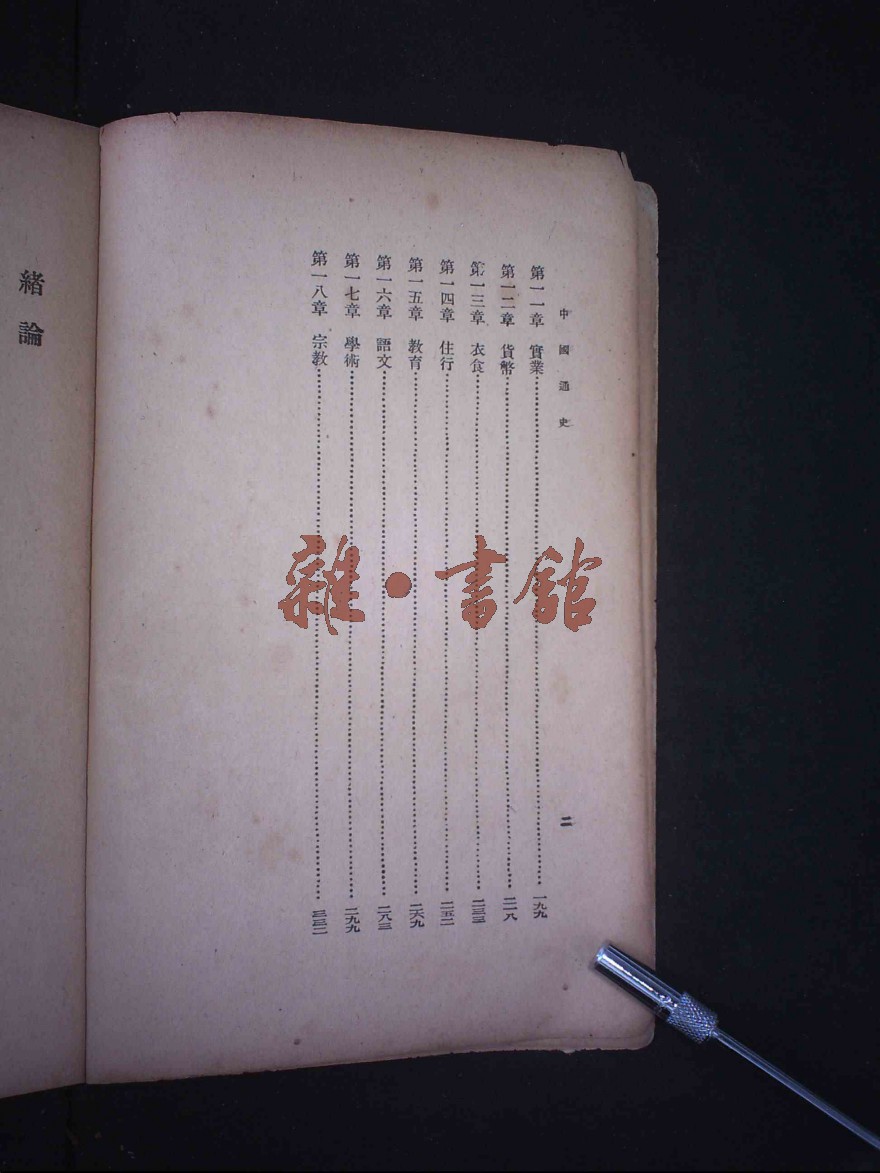 中國通史
二
第一一章　實業……一九九
第一二章　貨幣……二一八
第一三章　衣食……二三三
第一四章　住行……二五二
第一五章　教育……二六九
第一六章　語文……二八三
第一七章　學術……二九九
第一八章　宗教……三三二
緒論
雜·書館